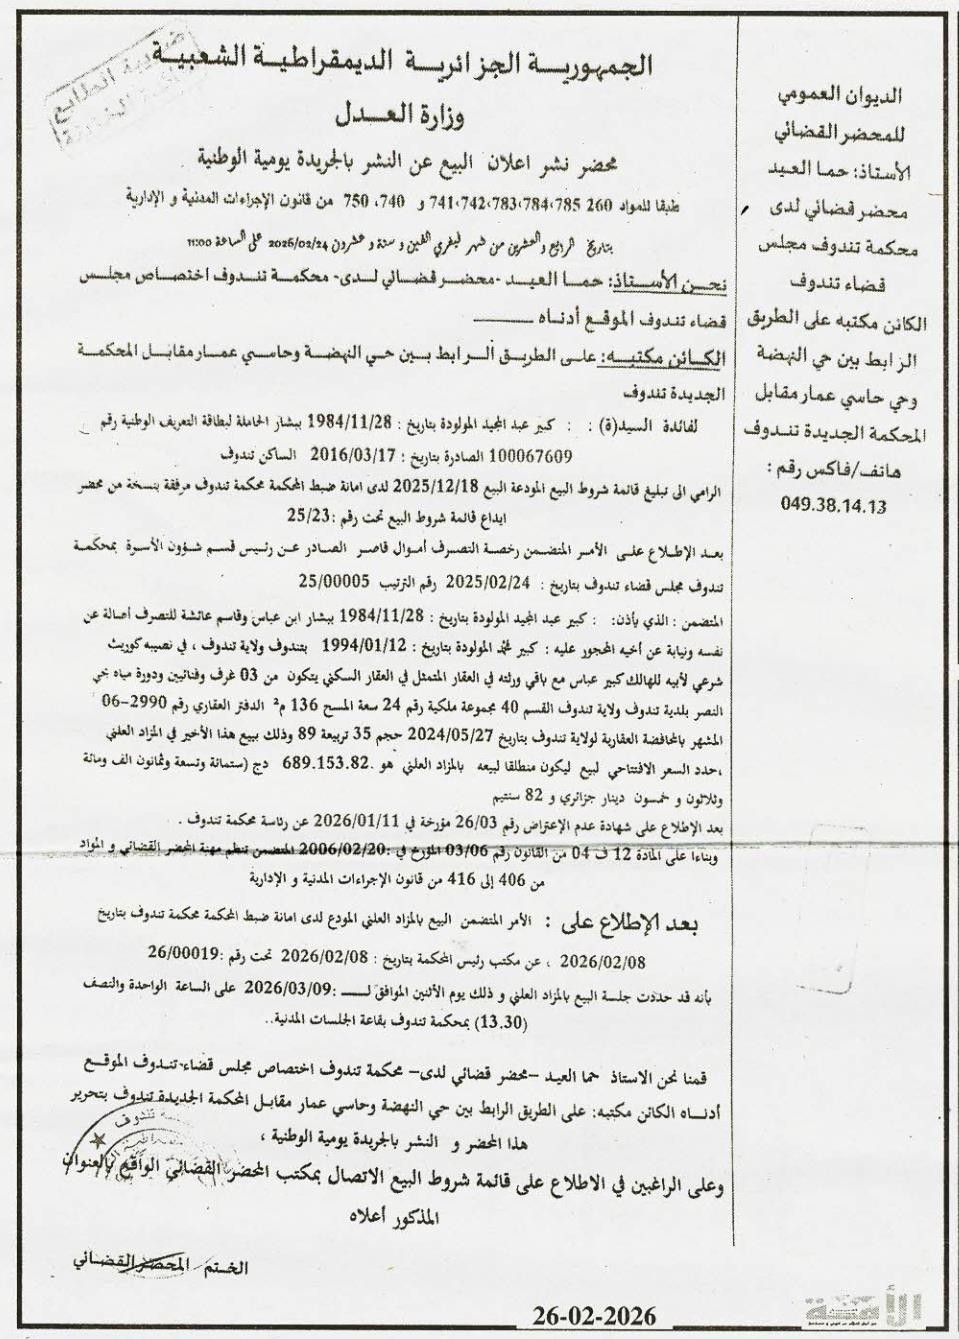 الجمهورية الجزائرية الديمقراطية الشعبية
وزارة العدل
محضر نشر اعلان البيع عن النشر بالجريدة يومية الوطنية
طبقا للمواد 260 785،784،783،742،741 و 740، 750 من قانون الإجراءات المدنية و الإدارية
بتاريخ الرابع والعشرين من شهر فيفري الفين و ستة و عشرون 2026/02/24 على الساعة 11:00
نحن الأستاذ: حما العيد -محضر قضائي لدى- محكمة تندوف اختصاص مجلس
قضاء تندوف الموقع أدناه
الكائن مكتبه: على الطريق الرابط بين حي النهضة وحاسي عمار مقابل المحكمة
الجديدة تندوف
لفائدة السيد(ة) : : كبير عبد المجيد المولودة بتاريخ : 1984/11/28 ببشار الحاملة لبطاقة التعريف الوطنية رقم
100067609 الصادرة بتاريخ : 2016/03/17 الساكن تندوف
الرامي الى تبليغ قائمة شروط البيع المودعة البيع 2025/12/18 لدى امانة ضبط المحكمة محكمة تندوف مرفقة بنسخة من محضر
ايداع قائمة شروط البيع تحت رقم :25/23
بعد الإطلاع على الأمر المتضمن رخصة التصرف أموال قاصر الصادر عن رئيس قسم شؤون الأسرة بمحكمة
تندوف مجلس قضاء تندوف بتاريخ : 2025/02/24 رقم الترتيب 25/00005
المتضمن : الذي يأذن: : كبير عبد المجيد المولودة بتاريخ : 1984/11/28 ببشار ابن عباس وقاسم عائشة للتصرف أصالة عن
نفسه ونيابة عن أخيه المحجور عليه : كبير محمد المولودة بتاريخ : 1994/01/12 بتندوف ولاية تندوف ، في نصيبه كوريث
شرعي لأبيه للهالك كبير عباس مع باقي ورثته في العقار المتمثل في العقار السكني يتكون من 03 غرف وفنائيين ودورة مياه بحي
النصر بلدية تندوف ولاية تندوف القسم 40 مجموعة ملكية رقم 24 سعة المسح 136 م² الدفتر العقاري رقم 2990-06
المشهر بالمحافضة العقارية لولاية تندوف بتاريخ 2024/05/27 حجم 35 تربيعة 89 وذلك ببيع هذا الأخير في المزاد العلني
،حدد السعر الافتتاحي لبيع ليكون منطلقا لبيعه بالمزاد العلني هو .689.153.82 دج (ستمائة وتسعة وثمانون الف ومائة
وثلاثون و خمسون دينار جزائري و 82 سنتيم
بعد الإطلاع على شهادة عدم الإعتراض رقم 26/03 مؤرخة في 2026/01/11 عن رئاسة محكمة تندوف .
وبناءا على المادة 12 ف 04 من القانون رقم 03/06 المؤرخ في :2006/02/20 المتضمن تنظم مهنة المحضر القضائي و المواد
من 406 إلى 416 من قانون الإجراءات المدنية و الإدارية
بعد الإطلاع على : الأمر المتضمن البيع بالمزاد العلني المودع لدى امانة ضبط المحكمة محكمة تندوف بتاريخ
2026/02/08 ، عن مكتب رئيس المحكمة بتاريخ : 2026/02/08 تحت رقم :26/00019
بأنه قد حددت جلسة البيع بالمزاد العلني و ذلك يوم الأثنين الموافق لـــ :2026/03/09 على الساعة الواحدة والنصف
(13.30) بمحكمة تندوف بقاعة الجلسات المدنية..
قمنا نحن الاستاذ حما العيد -محضر قضائي لدى- محكمة تندوف اختصاص مجلس قضاء تندوف الموقع
أدناه الكائن مكتبه: على الطريق الرابط بين حي النهضة وحاسي عمار مقابل المحكمة الجديدة تندوف بتحرير
هذا المحضر و النشر بالجريدة يومية الوطنية ،
وعلى الراغبين في الاطلاع على قائمة شروط البيع الاتصال بمكتب المحضر القضائي الواقع بالعنوان
المذكور أعلاه
الختم المحضر القضائي
الديوان العمومي
للمحضر القضائي
الأستاذ: حما العيد
محضر قضائي لدى
محكمة تندوف مجلس
قضاء تندوف
الكائن مكتبه على الطريق
الرابط بين حي النهضة
وحي حاسي عمار مقابل
المحكمة الجديدة تندوف
هاتف/فاكس رقم :
049.38.14.13
26-02-2026
الأمة